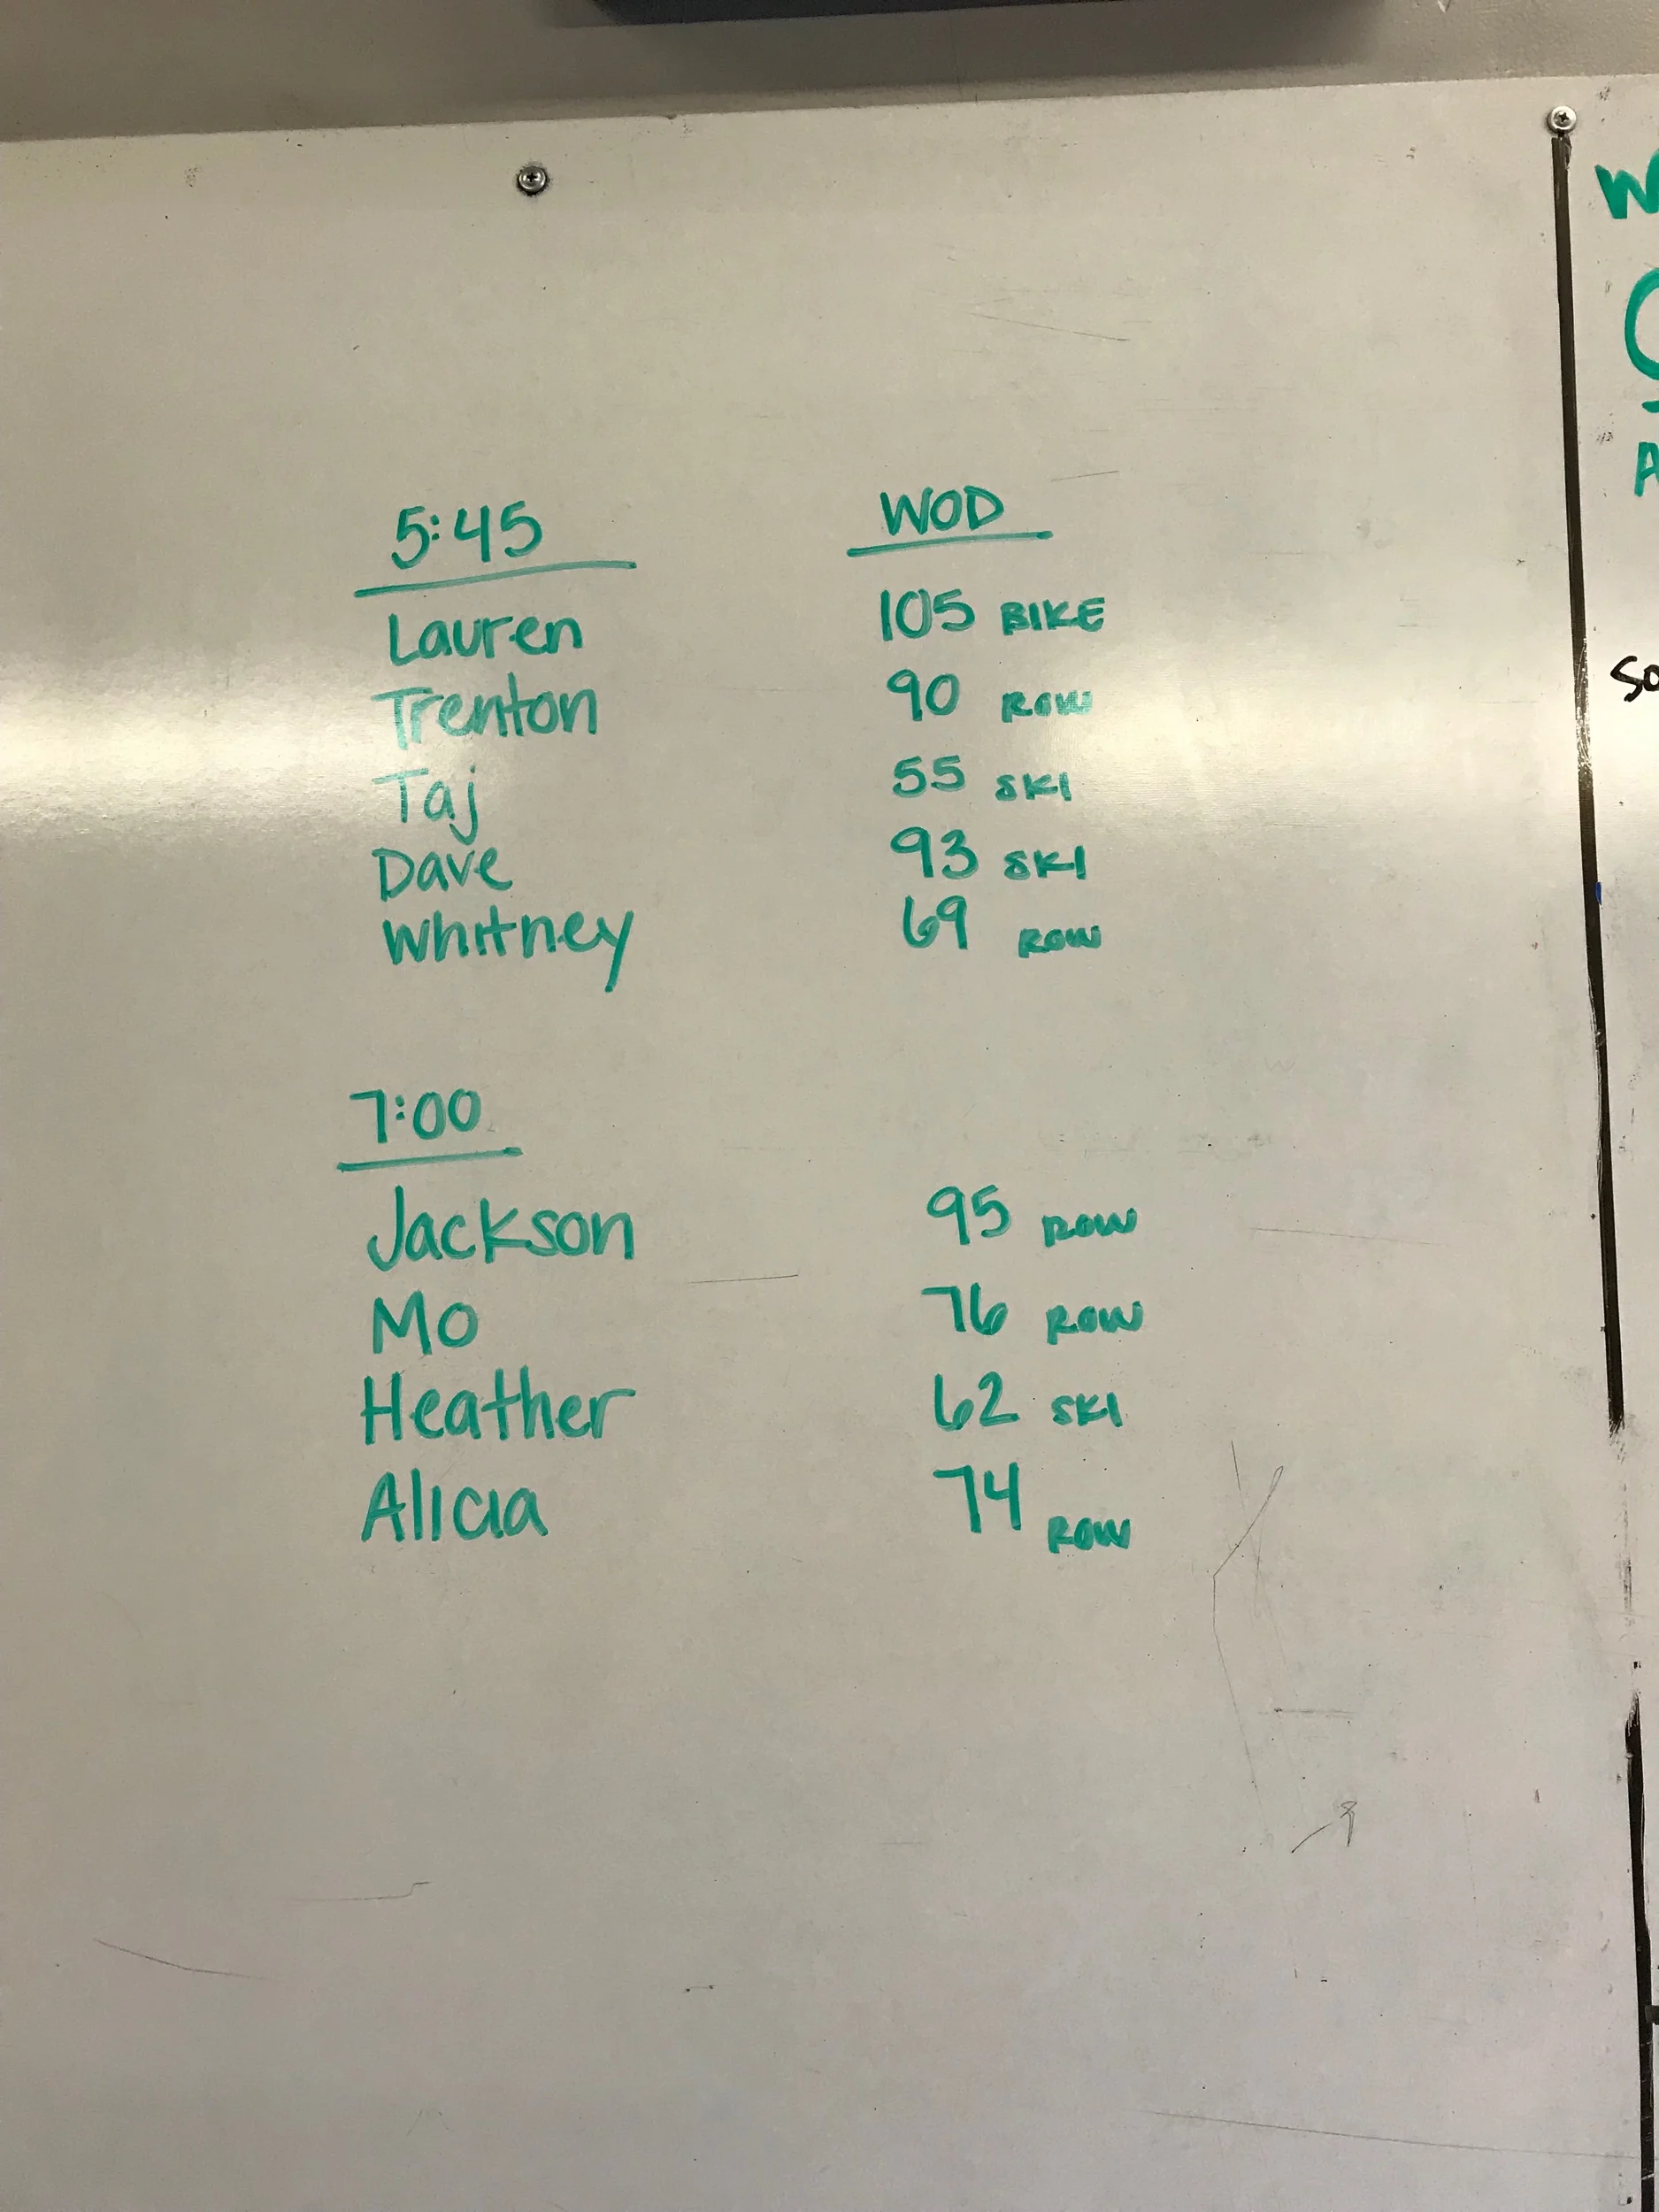 5:45 WOD
Lauren 105 BIKE
Trenton 90 ROW
Taj 55 SKI
Dave 93 SKI
Whitney 69 ROW
7:00
Jackson 95 ROW
Mo 76 ROW
Heather 62 SKI
Alicia 74 ROW